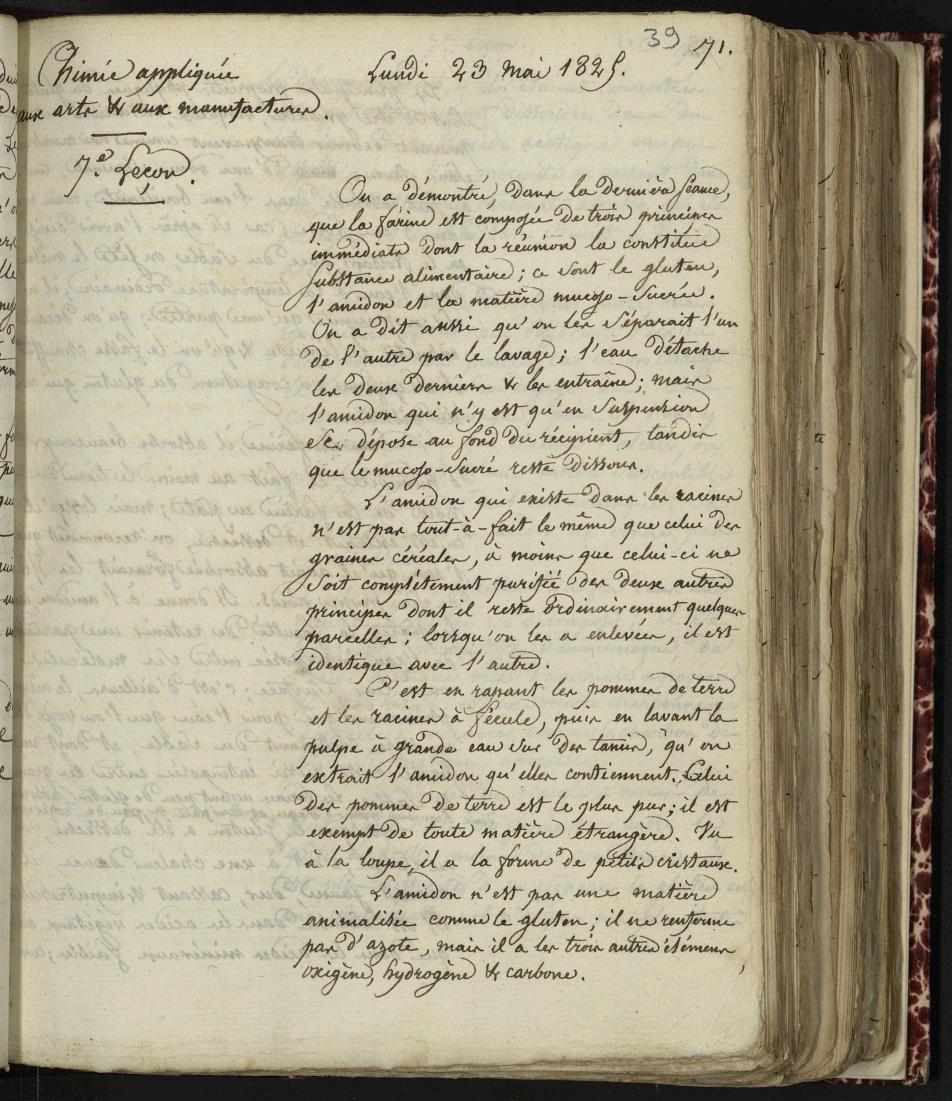 39 71.
Chimie appliquée
aux arts & aux manufactures.
Lundi 23 Mai 1825.
7.e Leçon.
On a démontré, dans la dernière séance,
que la farine est composée de trois principes
immédiats dont la réunion la constitue
substance alimentaire; ce sont le gluten,
l'amidon et la matière mucoso-sucrée.
On a dit aussi qu'on les séparait l'un
de l'autre par le lavage; l'eau détache
les deux derniers & les entraîne; mais
l'amidon qui n'y est qu'en suspension
se dépose au fond du récipient, tandis
que le mucoso-sucré reste dissous.
L'amidon qui existe dans les racines
n'est pas tout-à-fait le même que celui des
graines céréales, à moins que celui-ci ne
soit complétement purifié des deux autres
principes dont il reste ordinairement quelques
parcelles; lorsqu'on les a enlevées, il est
identique avec l'autre.
C'est en rapant les pommes de terre
et les racines à fécule, puis en lavant la
pulpe à grande eau sur des tamis, qu'on
extrait l'amidon qu'elles contiennent. Celui
des pommes de terre est le plus pur; il est
exempt de toute matière étrangère. Vu
à la loupe, il a la forme de petits cristaux.
L'amidon n'est pas une matière
animalisée comme le gluten; il ne renferme
pas d'azote, mais il a les trois autres élémens,
oxigène, hydrogène & carbone.